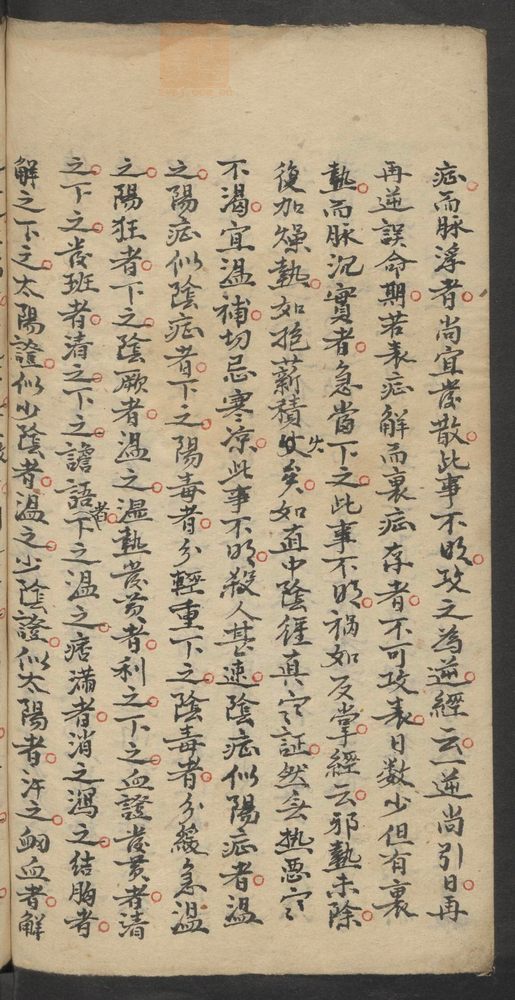 症而脉浮者尚宜發散此事不明攻之為逆經云一逆尚引日再
再逆誤命期若表症解而裏症存者不可攻表日数少但有裏
熱而脉沉實者急當下之此事不明禍如反掌經云邪熱未除
復加燥熱如抱薪積火矣如直中陰經真寒証然無热惡寒
不渴宜温補切忌寒凉此事不明殺人甚速陰症似陽症者温
之陽症似陰症者下之陽毒者分輕重下之陰毒者分緩急温
之陽狂者下之陰厥者温之濕熱發黄者利之下之血證發黄者清
之下之發班者清之下之譫語者下之温之痞滿者消之瀉之结胸者
解之下之太陽證似少陰者温之少陰證似太陽者汗之衂血者解